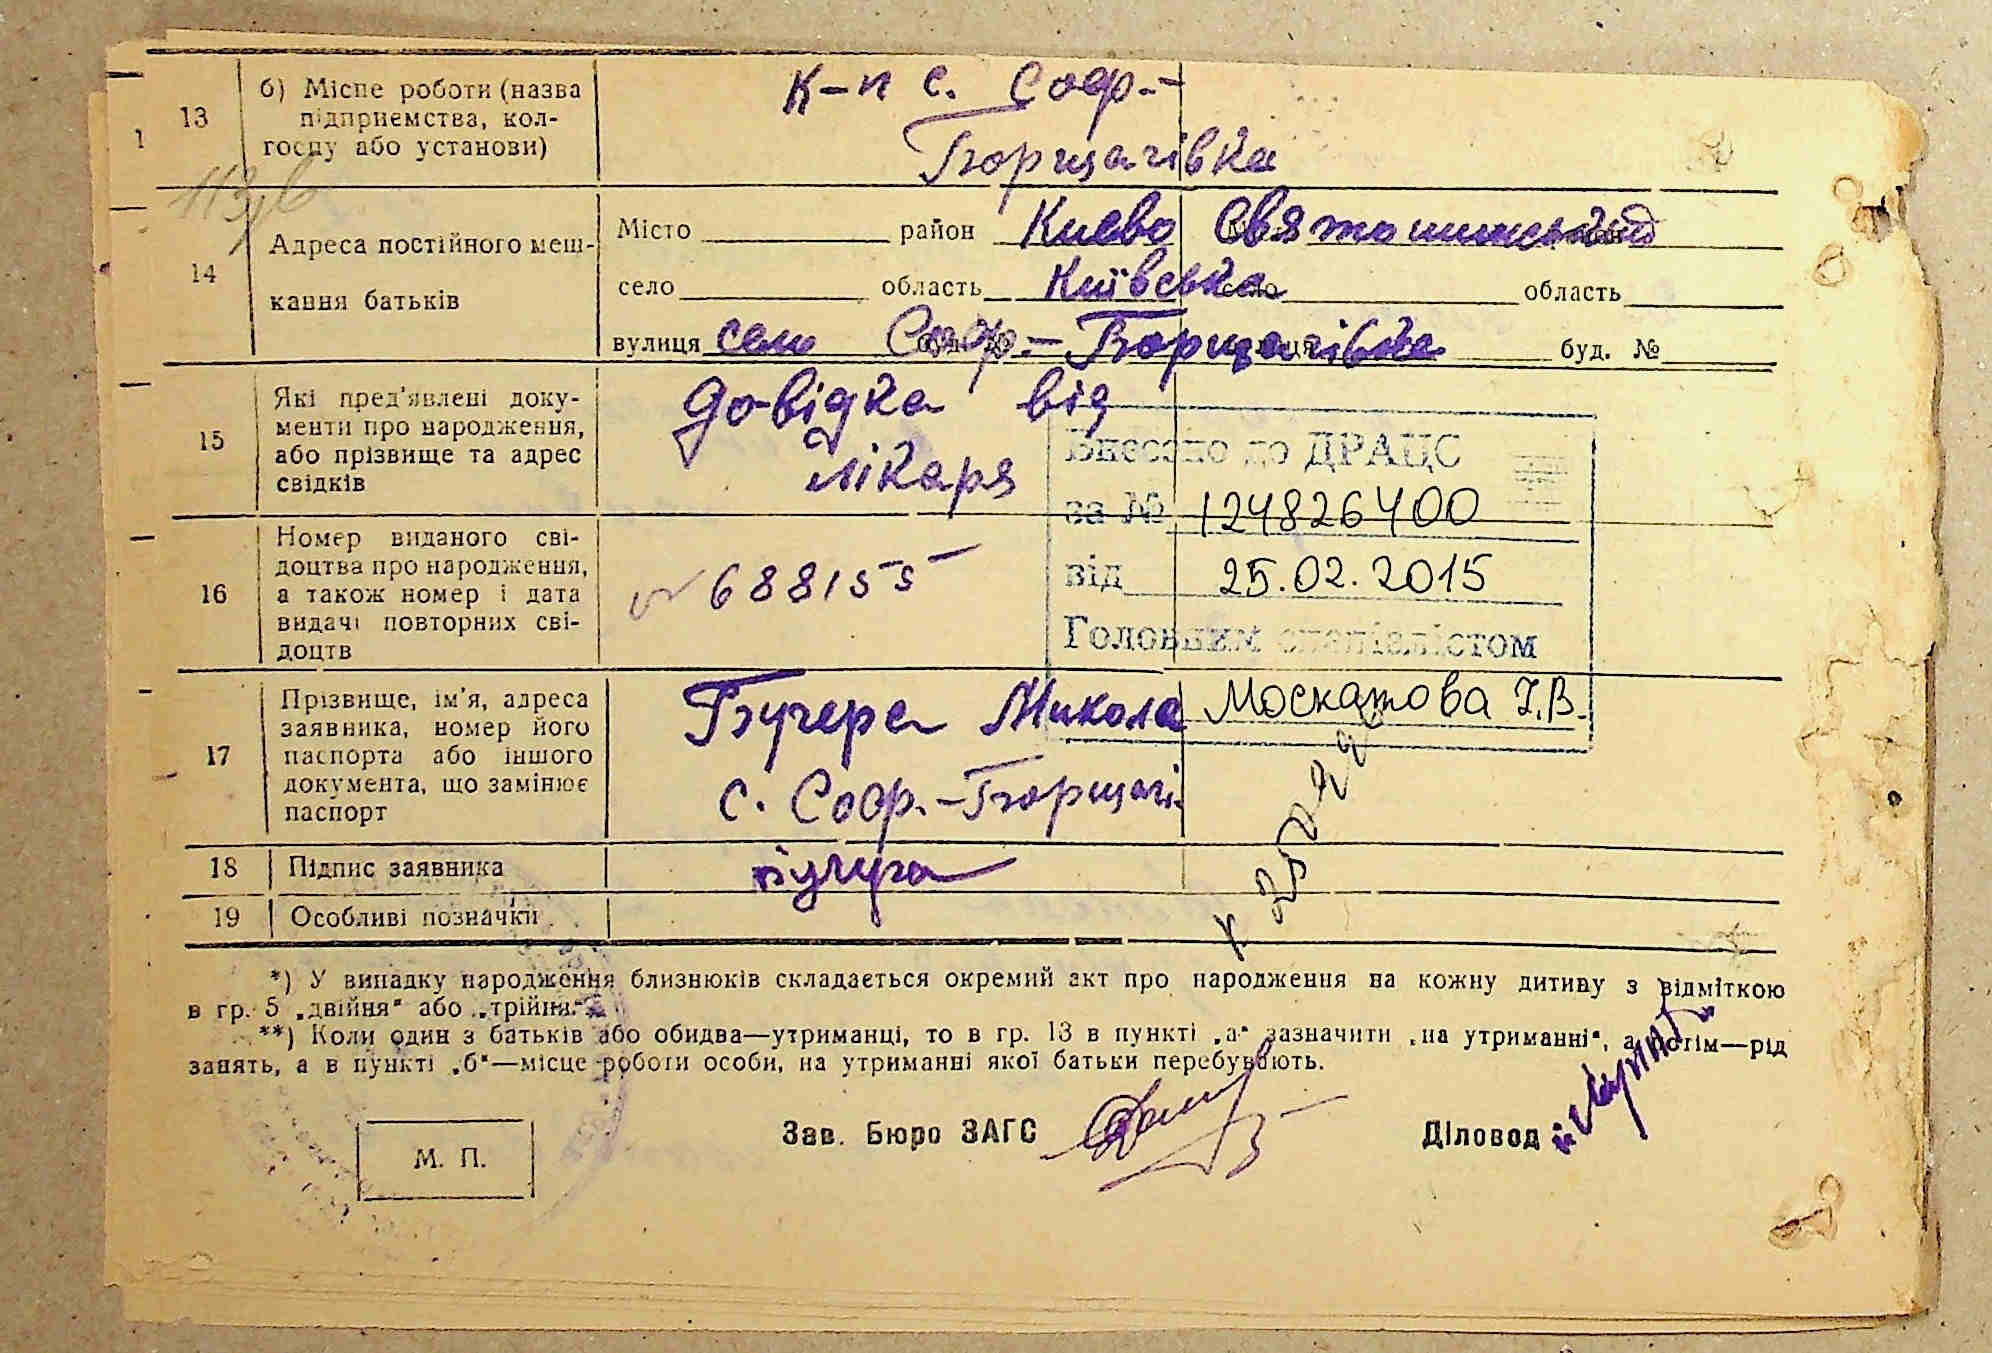 1
13
б) Місце роботи (назва
підприємства, кол-
госпу або установи)
К-п с. Соф.-
Борщагівка
113/6
14
Адреса постійного меш-
кання батьків
Місто район Києво Святошинський
село область Київська село область
вулиця село Соф.-Борщагівка буд. №
15
Які пред'явлені доку-
менти про народження,
або прізвище та адрес
свідків
Довідка від
лікаря
16
Номер виданого сві-
доцтва про народження,
а також номер і дата
видачі повторних сві-
доцтв
№ 688155
Внесено до ДРАЦС
за № 124826400
від 25.02.2015
Головним спеціалістом
Москатова І.В.
17
Прізвище, ім'я, адреса
заявника, номер його
паспорта або іншого
документа, що замінює
паспорт
Бучера Микола
с. Соф.-Борщагі.
18
Підпис заявника
19
Особливі позначки
*) У випадку народження близнюків складається окремий акт про народження на кожну дитину з відміткою
в гр. 5 „двійня“ або „трійня“.
**) Коли один з батьків або обидва—утриманці, то в гр. 13 в пункті „а“ зазначити „на утриманні“, а потім—рід
занять, а в пункті „б“—місце роботи особи, на утриманні якої батьки перебувають.
М. П.
Зав. Бюро ЗАГС
Діловод